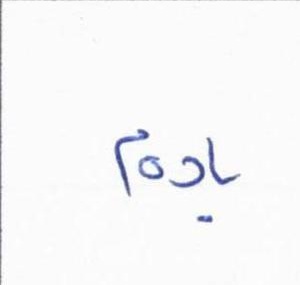 بادوم